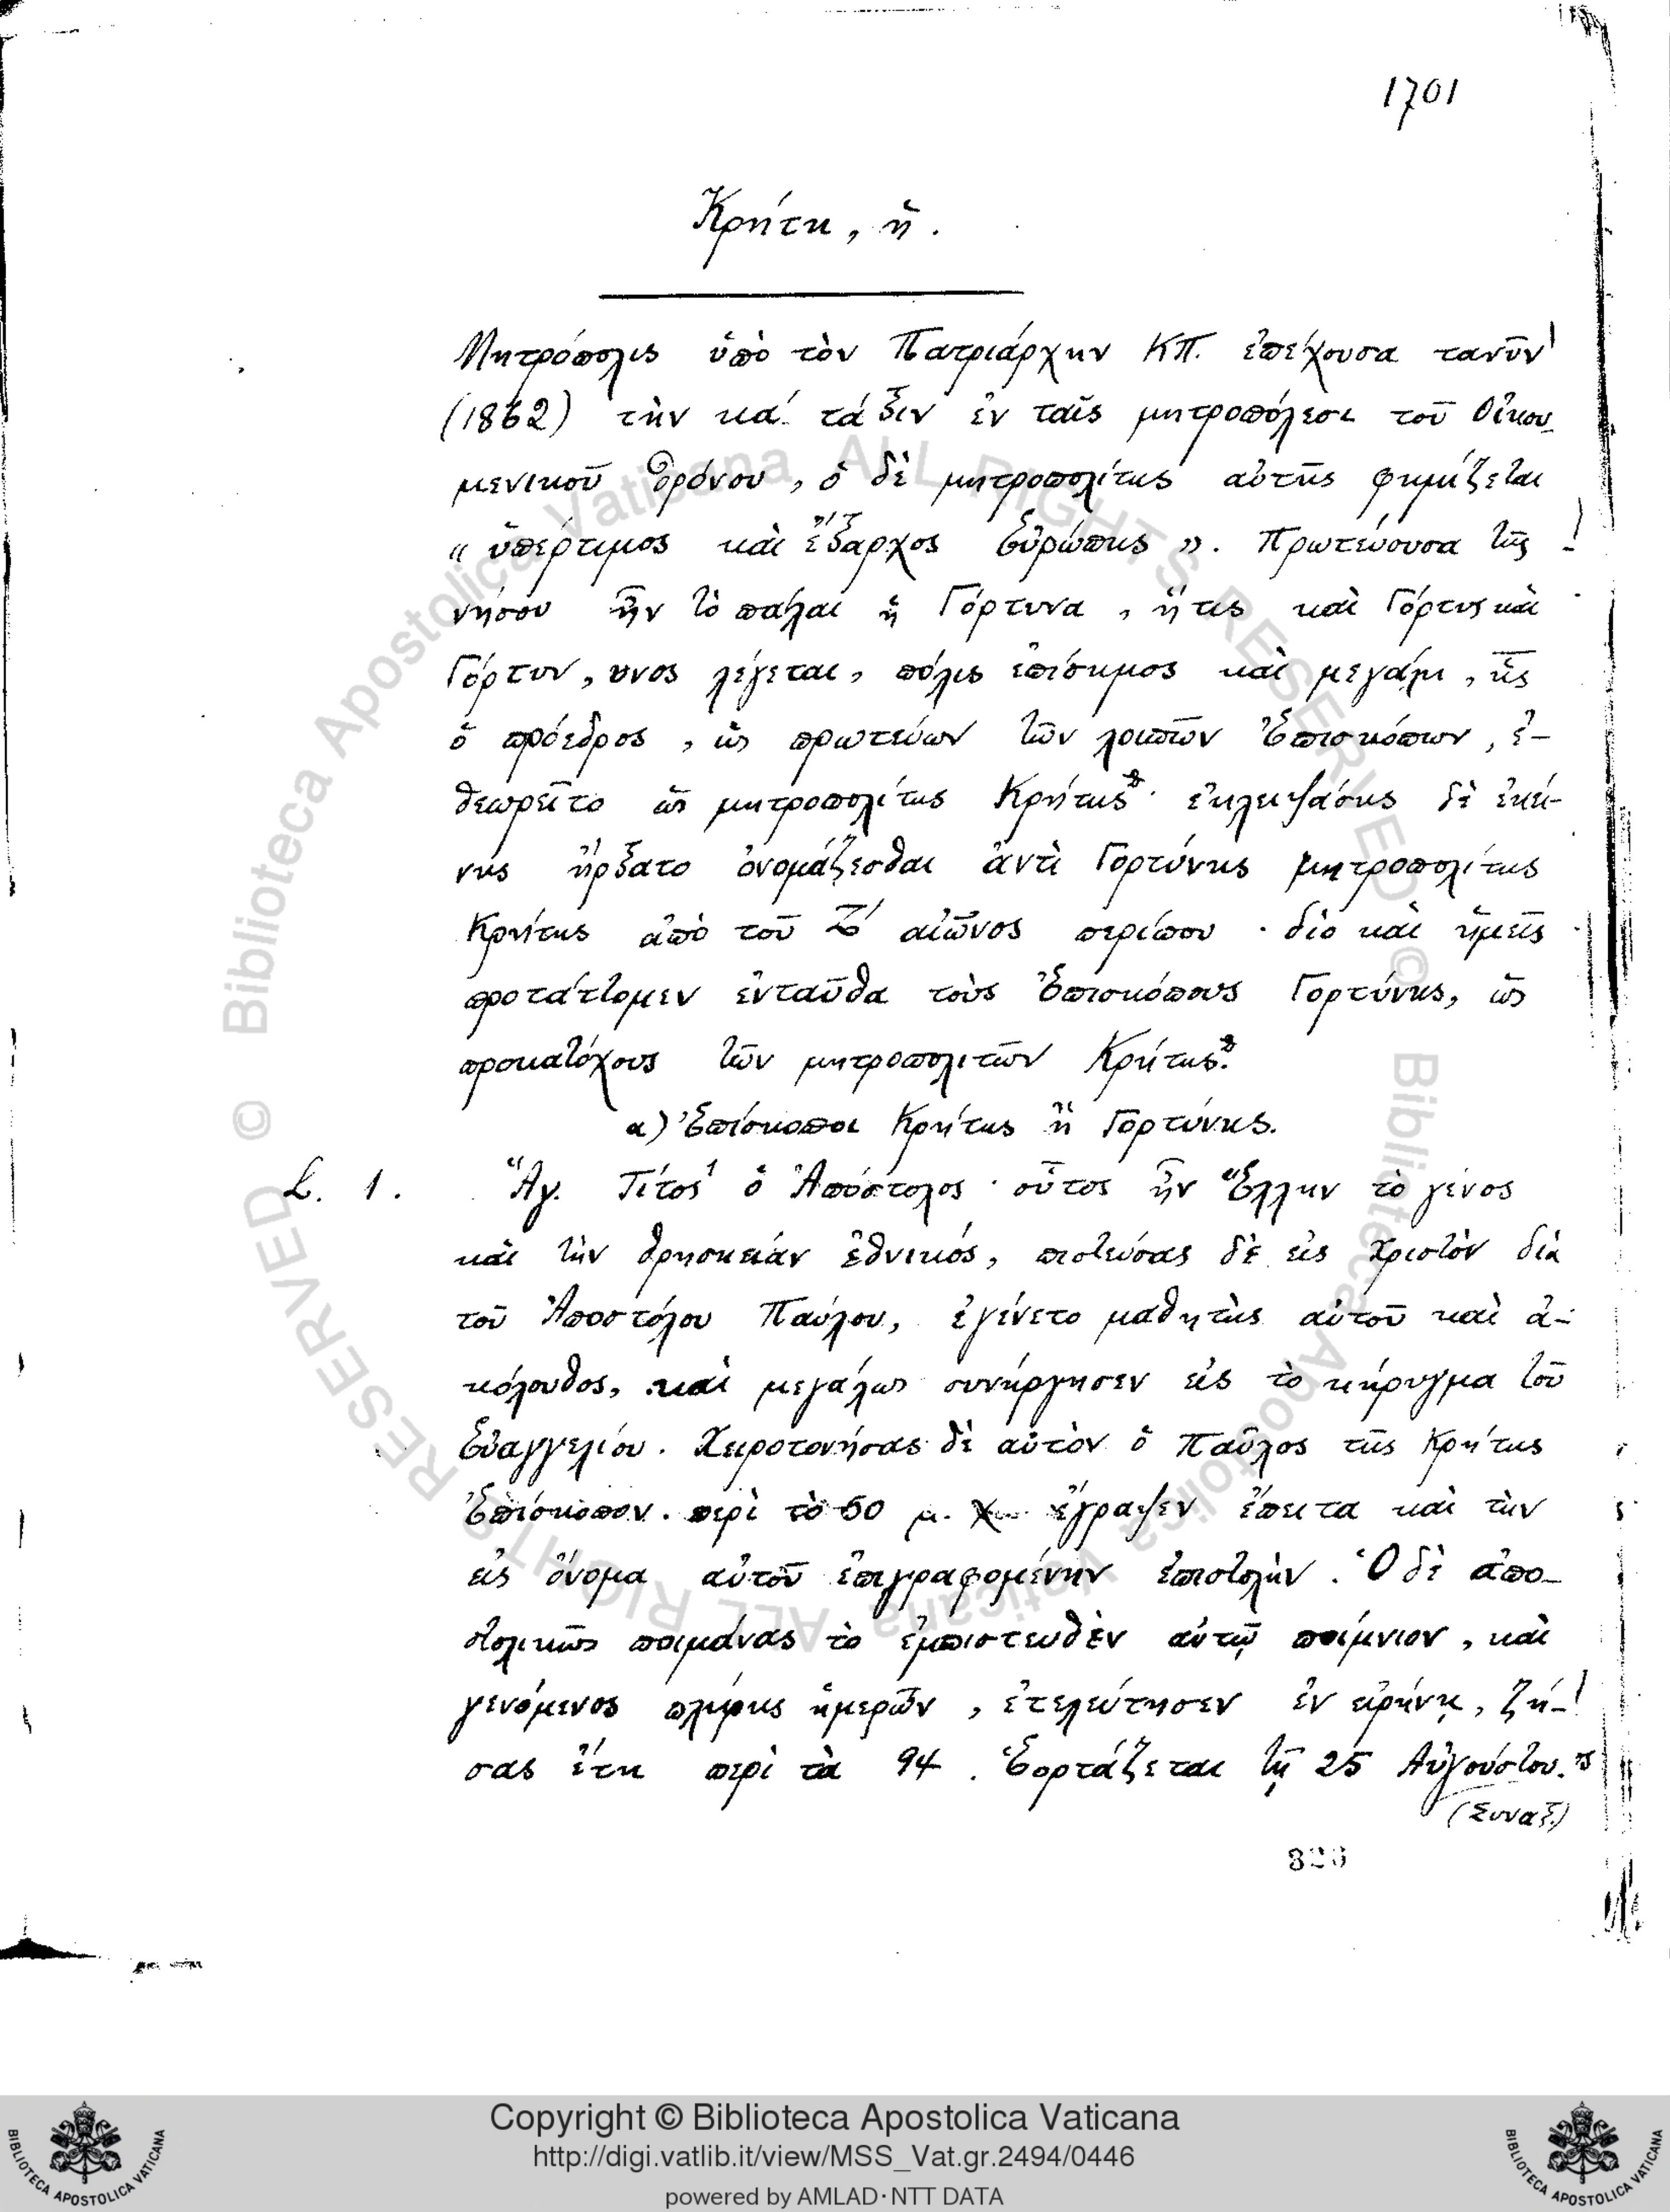 1701
Κρήτη, ἡ.
Μητρόπολις ὑπὸ τὸν Πατριάρχην ΚΠ. ἐπέχουσα τανῦν
(1862) τὴν κα΄. τάξιν ἐν ταῖς μητροπόλεσι τοῦ Οἰκου_
μενικοῦ θρόνου, ὁ δὲ μητροπολίτης αὐτῆς φημίζεται
« ὑπέρτιμος καὶ ἔξαρχος Εὐρώπης ». Πρωτεύουσα τῆς
νήσου ἦν τὸ πάλαι ἡ Γόρτυνα, ἥτις καὶ Γόρτυς καὶ
Γόρτυν, υνος λέγεται, πόλις ἐπίσημος καὶ μεγάλη, ἧς
ὁ πρόεδρος, ὡς πρωτεύων τῶν λοιπῶν Ἐπισκόπων, ἐ-
θεωρεῖτο ὡς μητροπολίτης Κρήτης· ἐκλειψάσης δὲ ἐκεί-
νης ἤρξατο ὀνομάζεσθαι ἀντὶ Γορτύνης μητροπολίτης
Κρήτης ἀπὸ τοῦ Ζ΄ αἰῶνος περίπου · διὸ καὶ ἡμεῖς
προτάττομεν ἐνταῦθα τοὺς Ἐπισκόπους Γορτύνης, ὡς
προκατόχους τῶν μητροπολιτῶν Κρήτης.
α) Ἐπίσκοποι Κρήτης ἢ Γορτύνης.
L. 1. Ἅγ. Τίτος ὁ Ἀπόστολος · οὗτος ἦν Ἕλλην τὸ γένος
καὶ τὴν θρησκείαν ἐθνικός, πιστεύσας δὲ εἰς Χριστὸν διὰ
τοῦ Ἀποστόλου Παύλου, ἐγένετο μαθητὴς αὐτοῦ καὶ ἀ-
κόλουθος, καὶ μεγάλως συνήργησεν εἰς τὸ κήρυγμα τοῦ
Εὐαγγελίου. Χειροτονήσας δὲ αὐτὸν ὁ Παῦλος τῆς Κρήτης
Ἐπίσκοπον. περὶ τὸ 60 μ. Χ. ἔγραψεν ἔπειτα καὶ τὴν
εἰς ὄνομα αὐτοῦ ἐπιγραφομένην ἐπιστολήν. Ὁ δὲ ἀπο_
στολικῶς ποιμάνας τὸ ἐμπιστευθὲν αὐτῷ ποίμνιον, καὶ
γενόμενος πλήρης ἡμερῶν, ἐτελεύτησεν ἐν εἰρήνῃ, ζή-
σας ἔτη περὶ τὰ 94. Ἑορτάζεται τῇ 25 Αὐγούστου.
(Συναξ.)
326
© Biblioteca Apostolica Vaticana ALL RIGHTS RESERVED © Biblioteca Apostolica Vaticana ALL RIGHTS RESERVED
Copyright © Biblioteca Apostolica Vaticana
http://digi.vatlib.it/view/MSS_Vat.gr.2494/0446
powered by AMLAD·NTT DATA
BIBLIOTECA APOSTOLICA VATICANA
BIBLIOTECA APOSTOLICA VATICANA